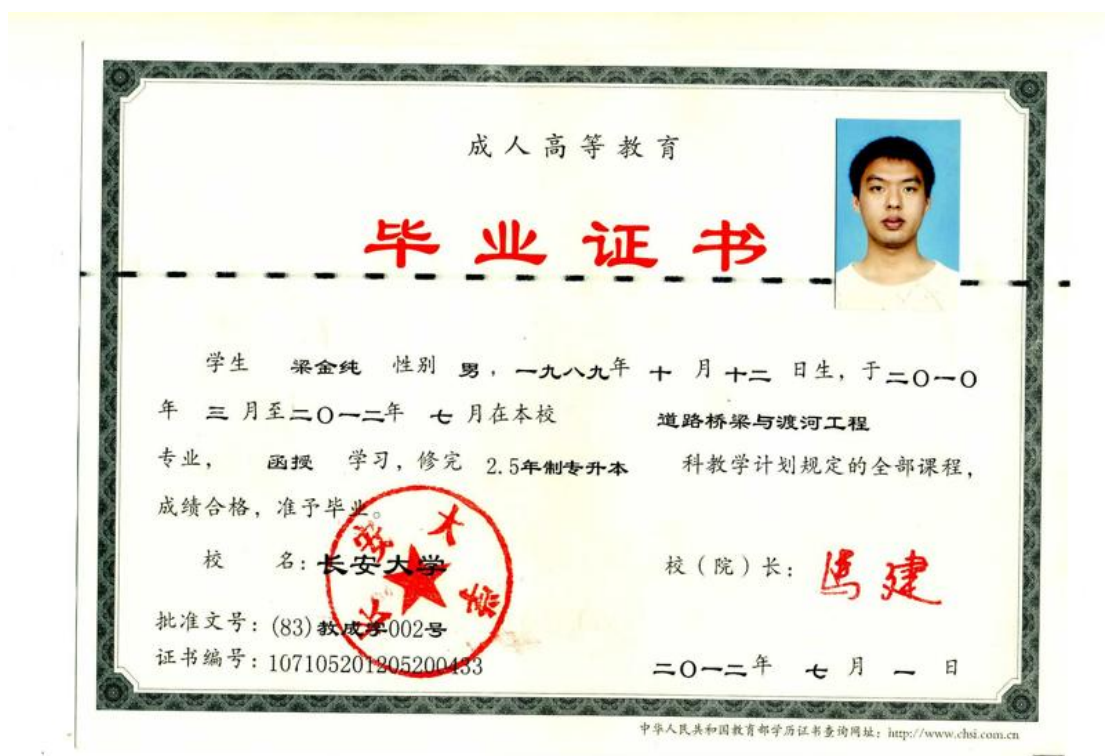 成人高等教育
毕业证书
学生 梁金纯 性别 男，一九八九年 十 月 十二 日生，于二〇一〇
年 三 月至二〇一二年 七 月在本校 道路桥梁与渡河工程
专业， 函授 学习，修完 2.5年制专升本 科教学计划规定的全部课程，
成绩合格，准予毕业。
校 名：长安大学 校（院）长：馬建
长安大学
批准文号：(83)教成字002号
证书编号：107105201205200433 二〇一二年 七 月 一 日
中华人民共和国教育部学历证书查询网址：http://www.chsi.com.cn